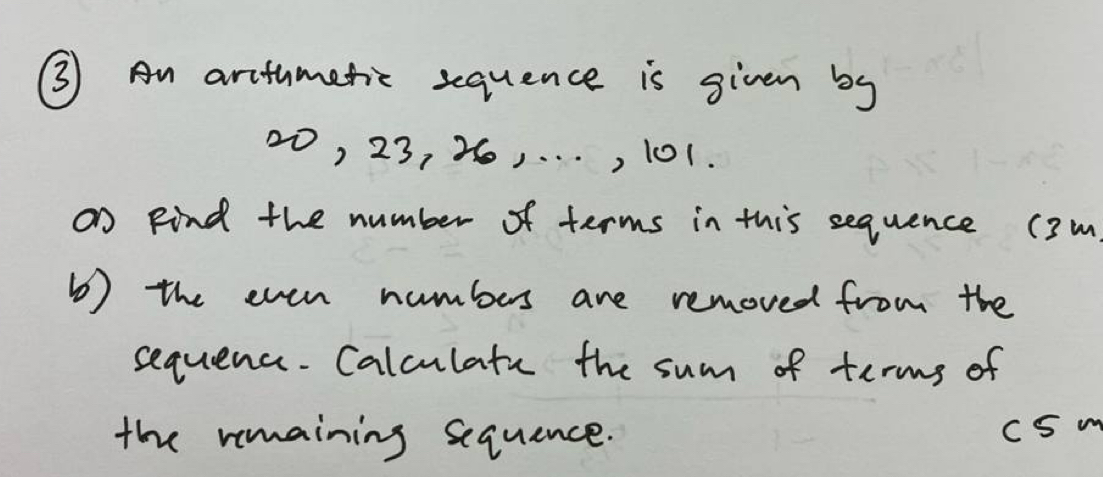 ③ An arithmetic sequence is given by
20, 23, 26, ..., 101.
a) Find the number of terms in this sequence (3 m.
b) the even numbers are removed from the
sequence. Calculate the sum of terms of
the remaining sequence. (5 m